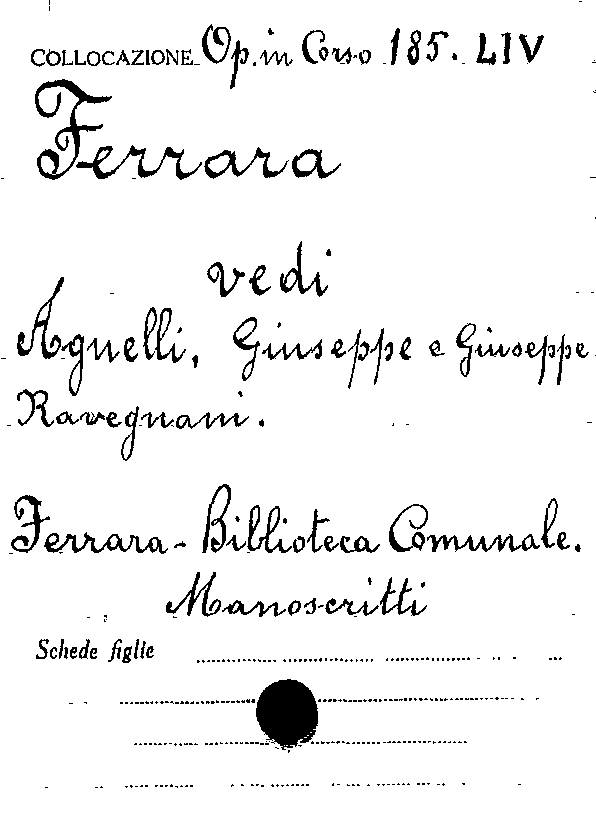 COLLOCAZIONE Op. in Corso 185. LIV
Ferrara
vedi
Agnelli, Giuseppe e Giuseppe
Ravegnani.
Ferrara - Biblioteca Comunale.
Manoscritti
Schede figlie